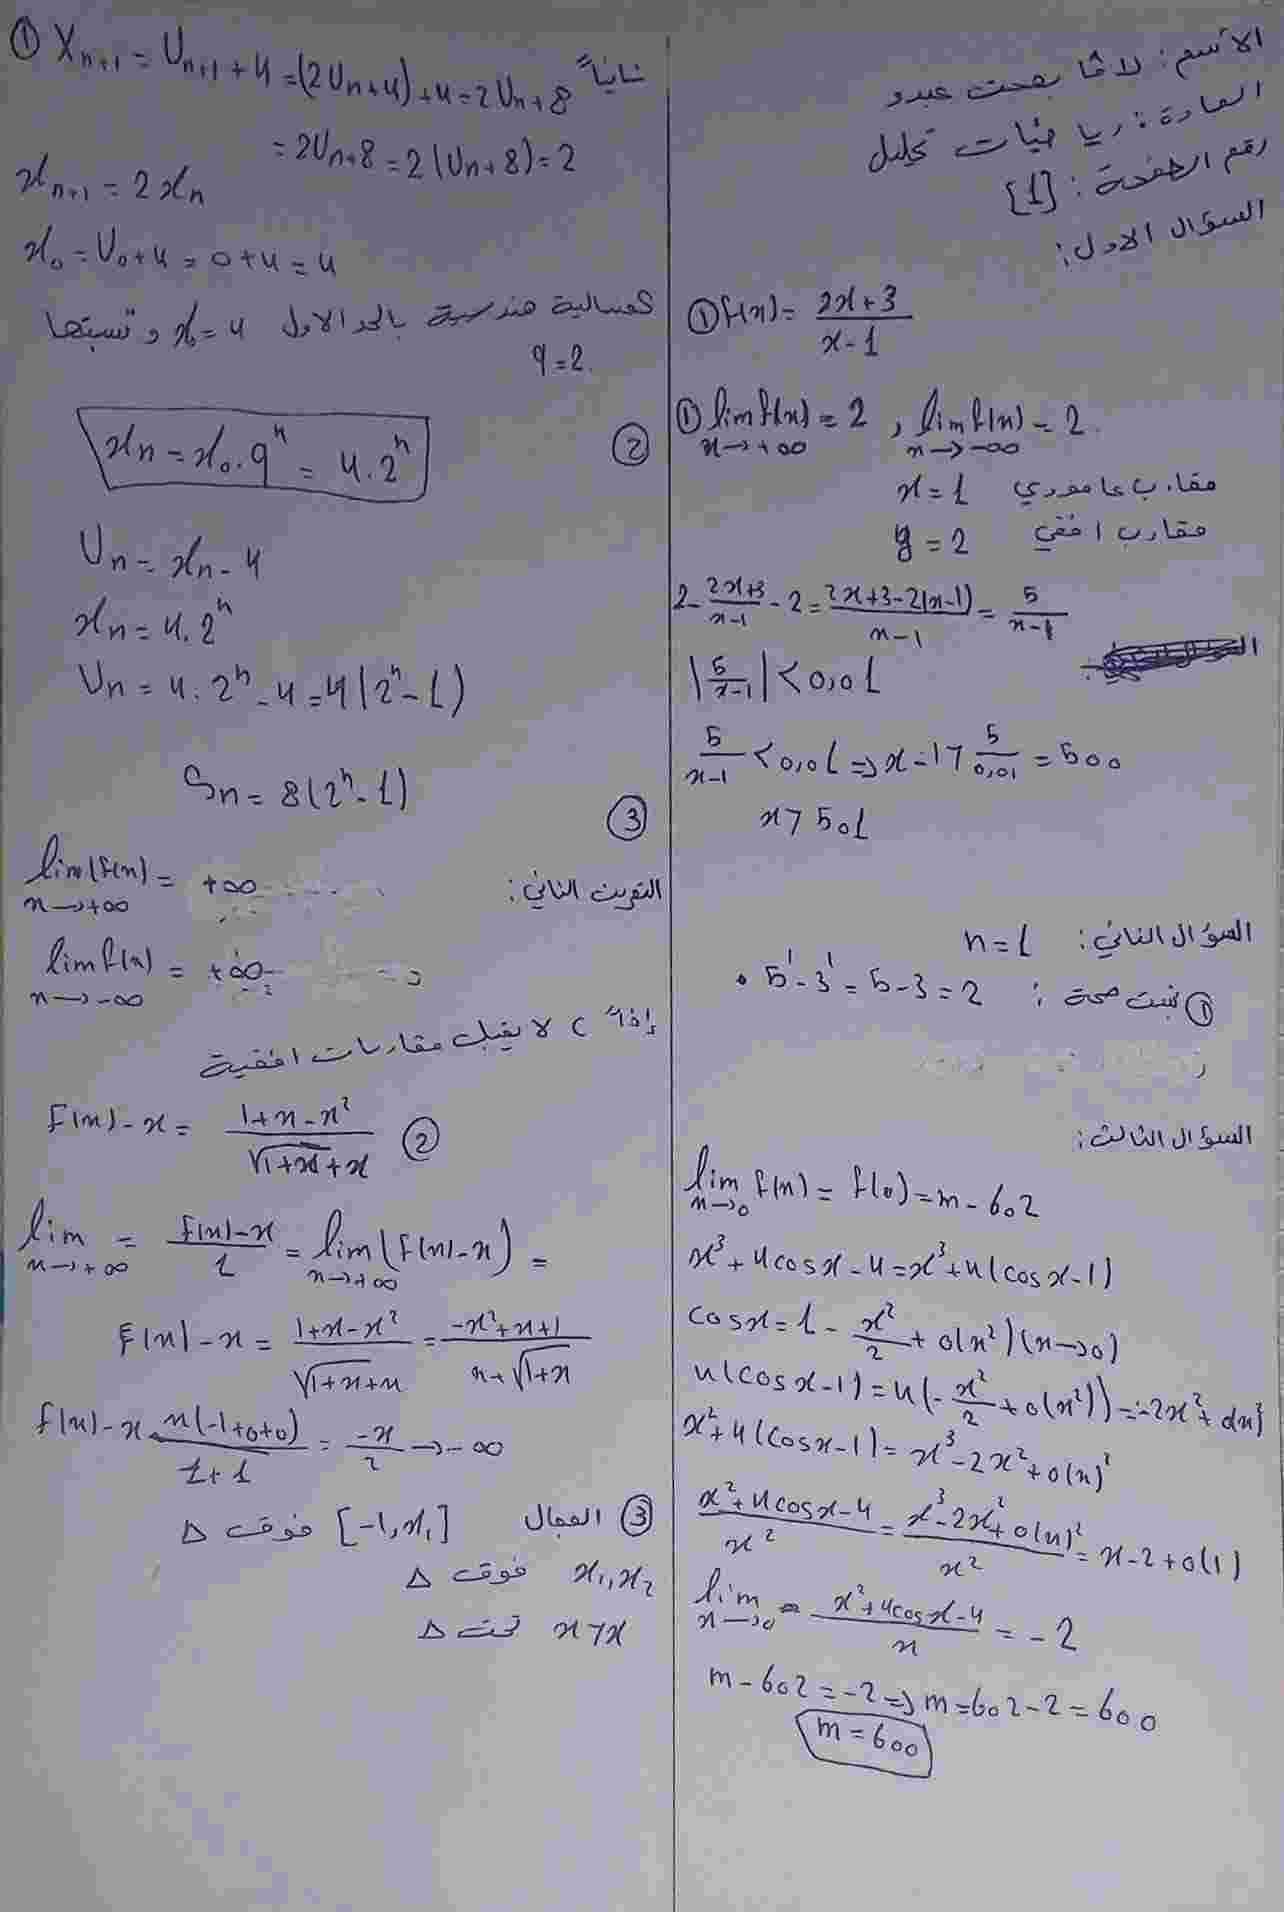 الاسم: لافا بهجت عبدو
المادة: رياضيات تحليل
رقم الصفحة: [1]
السؤال الاول:
① f(x) = (2x+3)/(x-1)
① lim f(x) = 2 , lim f(x) = 2
x→+∞ x→-∞
x=1 مقارب عامودي
y=2 مقارب افقي
2- (2x+3)/(x-1) - 2 = (2x+3-2(x-1))/(x-1) = 5/(x-1)
|5/(x-1)| < 0,01
5/(x-1) < 0,01 ⇒ x-1 > 5/0,01 = 500
x > 501
السؤال الثاني: n=1
① نثبت صحة: 5¹-3¹ = 5-3 = 2
السؤال الثالث:
lim f(x) = f(0) = m-602
x→0
x³+4cosx-4 = x³+4(cosx-1)
cosx = 1 - x²/2 + o(x²) (x→0)
4(cosx-1) = 4(-x²/2 + o(x²)) = -2x² + o(x²)
x²+4(cosx-1) = x³-2x²+o(x)²
(x²+4cosx-4)/x² = (x³-2x²+o(x)²)/x² = x-2+o(1)
lim = (x²+4cosx-4)/x = -2
x→0
m-602 = -2 ⇒ m = 602-2 = 600
m = 600
ثانياً ① X_{n+1} = U_{n+1}+4 = (2U_n+4)+4 = 2U_n+8
= 2U_n+8 = 2(U_n+8) = 2
x_{n+1} = 2x_n
x_0 = U_0+4 = 0+4 = 4
بالحد الاول x_0=4 و نسبتها
q=2.
② x_n = x_0.q^n = 4.2^n
U_n = x_n-4
x_n = 4.2^n
U_n = 4.2^n-4 = 4(2^n-1)
S_n = 8(2^n-1)
③
التمرين الثاني:
lim(f(x)) = +∞
x→+∞
lim f(x) = +∞
x→-∞
إذاً C لا يقبل مقاربات افقية
② f(x)-x = (1+x-x²)/(√(1+x)+x)
lim = (f(x)-x)/1 = lim(f(x)-x) =
x→+∞ x→+∞
f(x)-x = (1+x-x²)/(√(1+x)+x) = (-x²+x+1)/(x+√(1+x))
f(x)-x x(-1+0+0)/(1+1) = -x/2 → -∞
③ المجال [-1,x₁] فوق Δ
x₁,x₂ فوق Δ
x>x تحت Δ